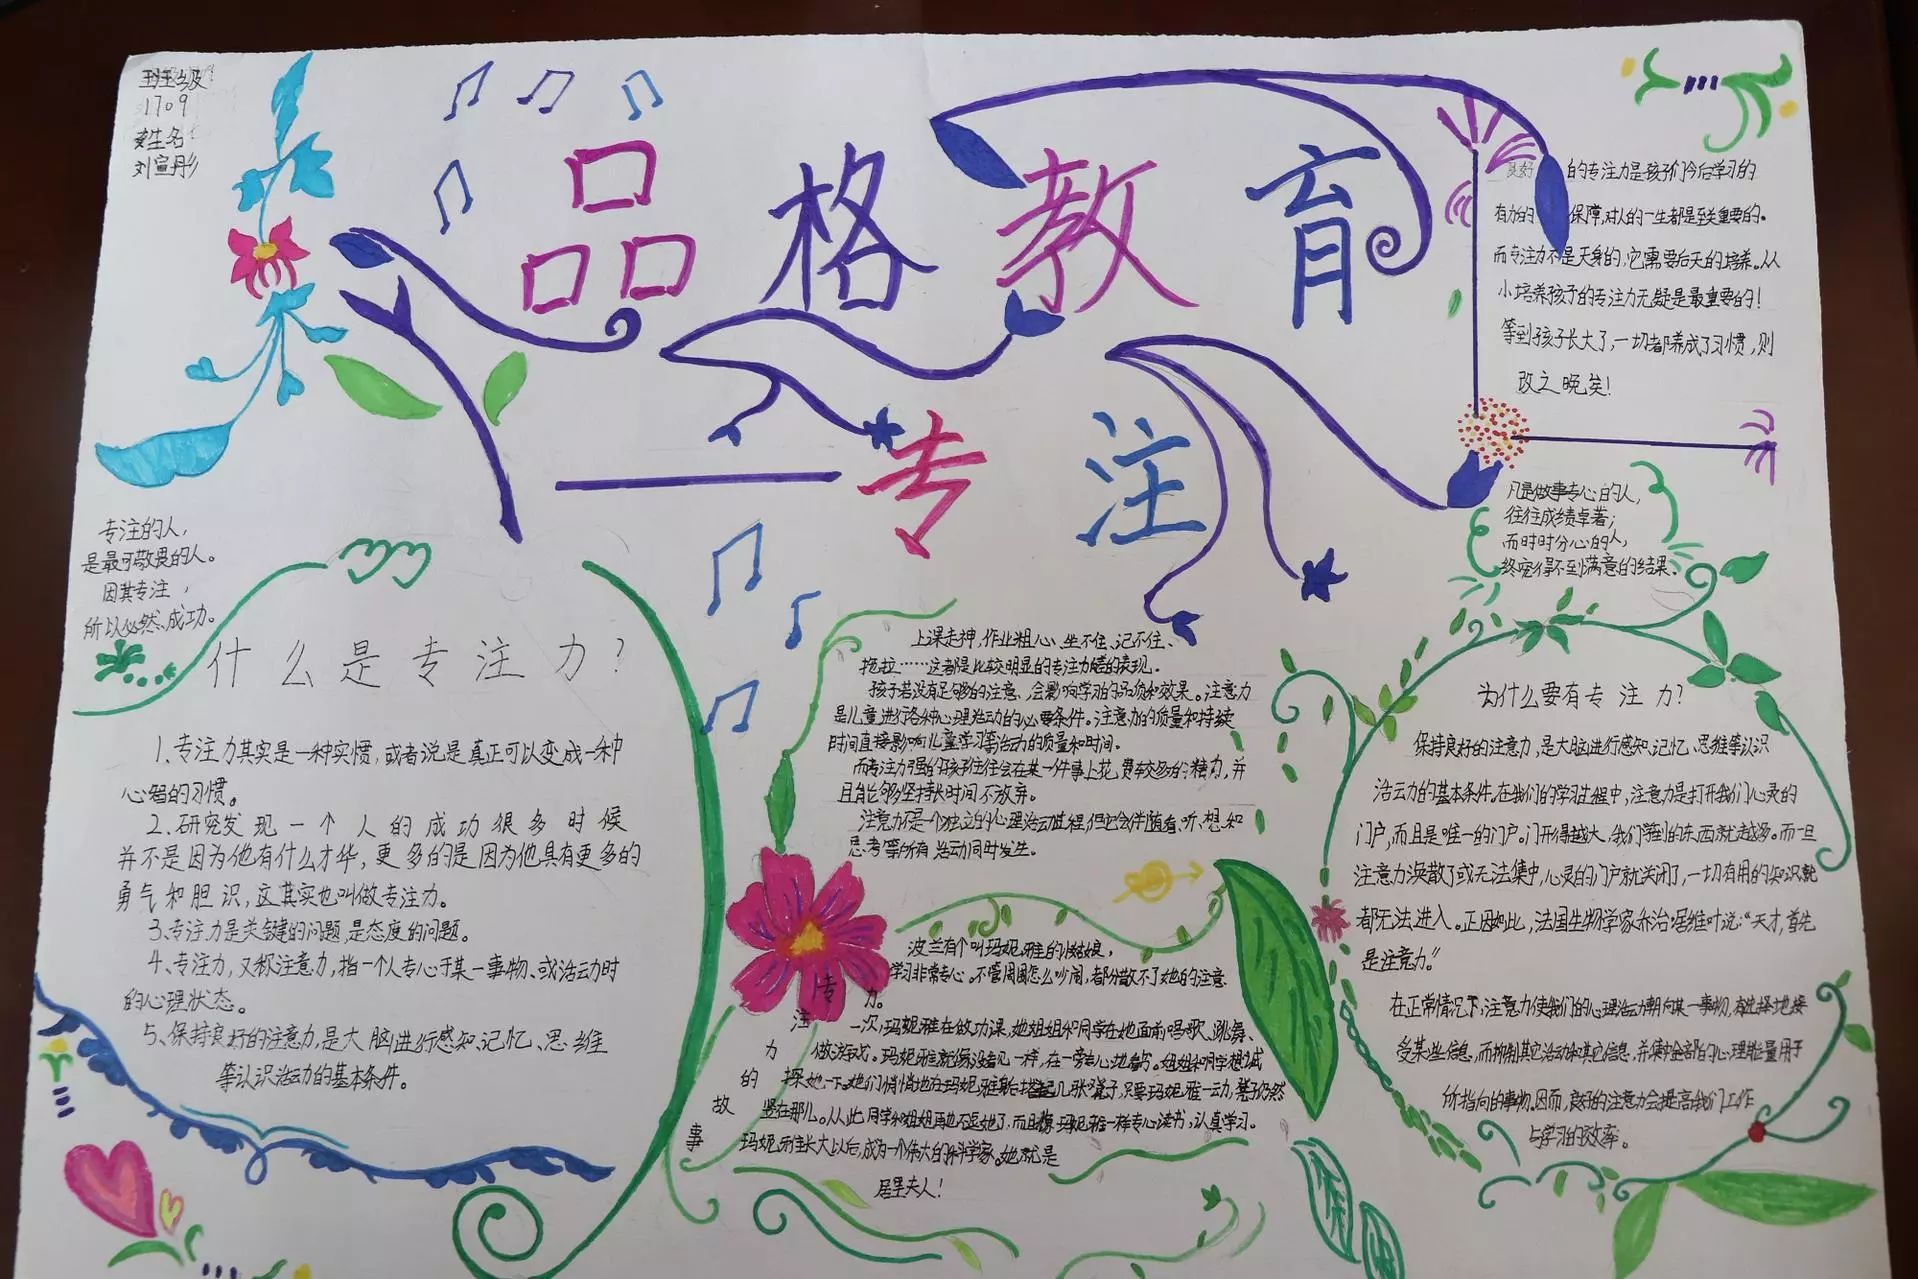 班级
1709
姓名
刘宣彤
品格教育
专注
良好的专注力是孩子们今后学习的
有力的保障,对人的一生都是至关重要的。
而专注力不是天身的,它需要后天的培养。从
小培养孩子的专注力无疑是最重要的!
等到孩子长大了,一切都养成了习惯,则
改之晚矣!
凡是做事专心的人,
往往成绩卓著;
而时时分心的人,
终究得不到满意的结果。
专注的人,
是最可敬畏的人。
因其专注,
所以必然成功。
什么是专注力?
1、专注力其实是一种实惯,或者说是真正可以变成一种
心智的习惯。
2、研究发现一个人的成功很多时候
并不是因为他有什么才华,更多的是因为他具有更多的
勇气和胆识,这其实也叫做专注力。
3、专注力是关键的问题,是态度的问题。
4、专注力,又称注意力,指一个人专心于某一事物、或活动时
的心理状态。
5、保持良好的注意力,是大脑进行感知、记忆、思维
等认识活动的基本条件。
上课走神,作业粗心、坐不住、记不住、
拖拉……这都是比较明显的专注力的表现。
孩子若没有足够的注意,会影响学习的品质和效果。注意力
是儿童进行各种心理活动的必要条件。注意力的质量和持续
时间直接影响儿童学习等活动的质量和时间。
而专注力强的孩子往往会在某一件事上花费较多的精力,并
且能够坚持长时间不放弃。
注意力不是一个独立的心理活动过程,但它会伴随看、听、想和
思考等所有活动同时发生。
专注力的故事
波兰有个叫玛妮雅的小姑娘,
学习非常专心。不管周围怎么吵闹,都分散不了她的注意
力。
一次,玛妮雅在做功课,她姐姐和同学在她面前唱歌、跳舞、
做游戏。玛妮雅就像没看见一样,在一旁专心地看书。姐姐和同学想试
探她一下。她们悄悄地在玛妮雅身后搭起几张凳子,只要玛妮雅一动,凳子仍然
竖在那儿。从此同学和姐姐再也不逗她了,而且像玛妮雅一样专心读书,认真学习。
玛妮雅长大以后,成为一个伟大的科学家。她就是
居里夫人!
为什么要有专注力?
保持良好的注意力,是大脑进行感知、记忆、思维等认识
活动的基本条件。在我们的学习过程中,注意力是打开我们心灵的
门户,而且是唯一的门户。门开得越大,我们学到的东西就越多。而一旦
注意力涣散了或无法集中,心灵的门户就关闭了,一切有用的知识就
都无法进入。正因如此,法国生物学家乔治·居维叶说:“天才,首先
是注意力。”
在正常情况下,注意力使我们的心理活动朝向某一事物,有选择地接
受某些信息,而抑制其它活动和其它信息,并集中全部的心理能量用于
所指向的事物。因而,良好的注意力会提高我们工作
与学习的效率。